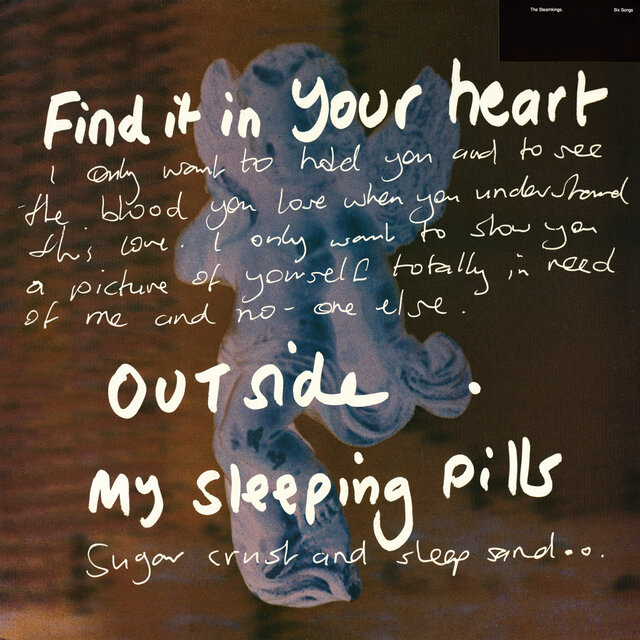 The Steamkings. Six Songs
Find it in Your heart
I only want to hold you and to see
the blood you love when you understand
this love. I only want to show you
a picture of yourself totally in need
of me and no-one else.
OUTside.
My sleeping pills
Sugar crust and sleep sand...